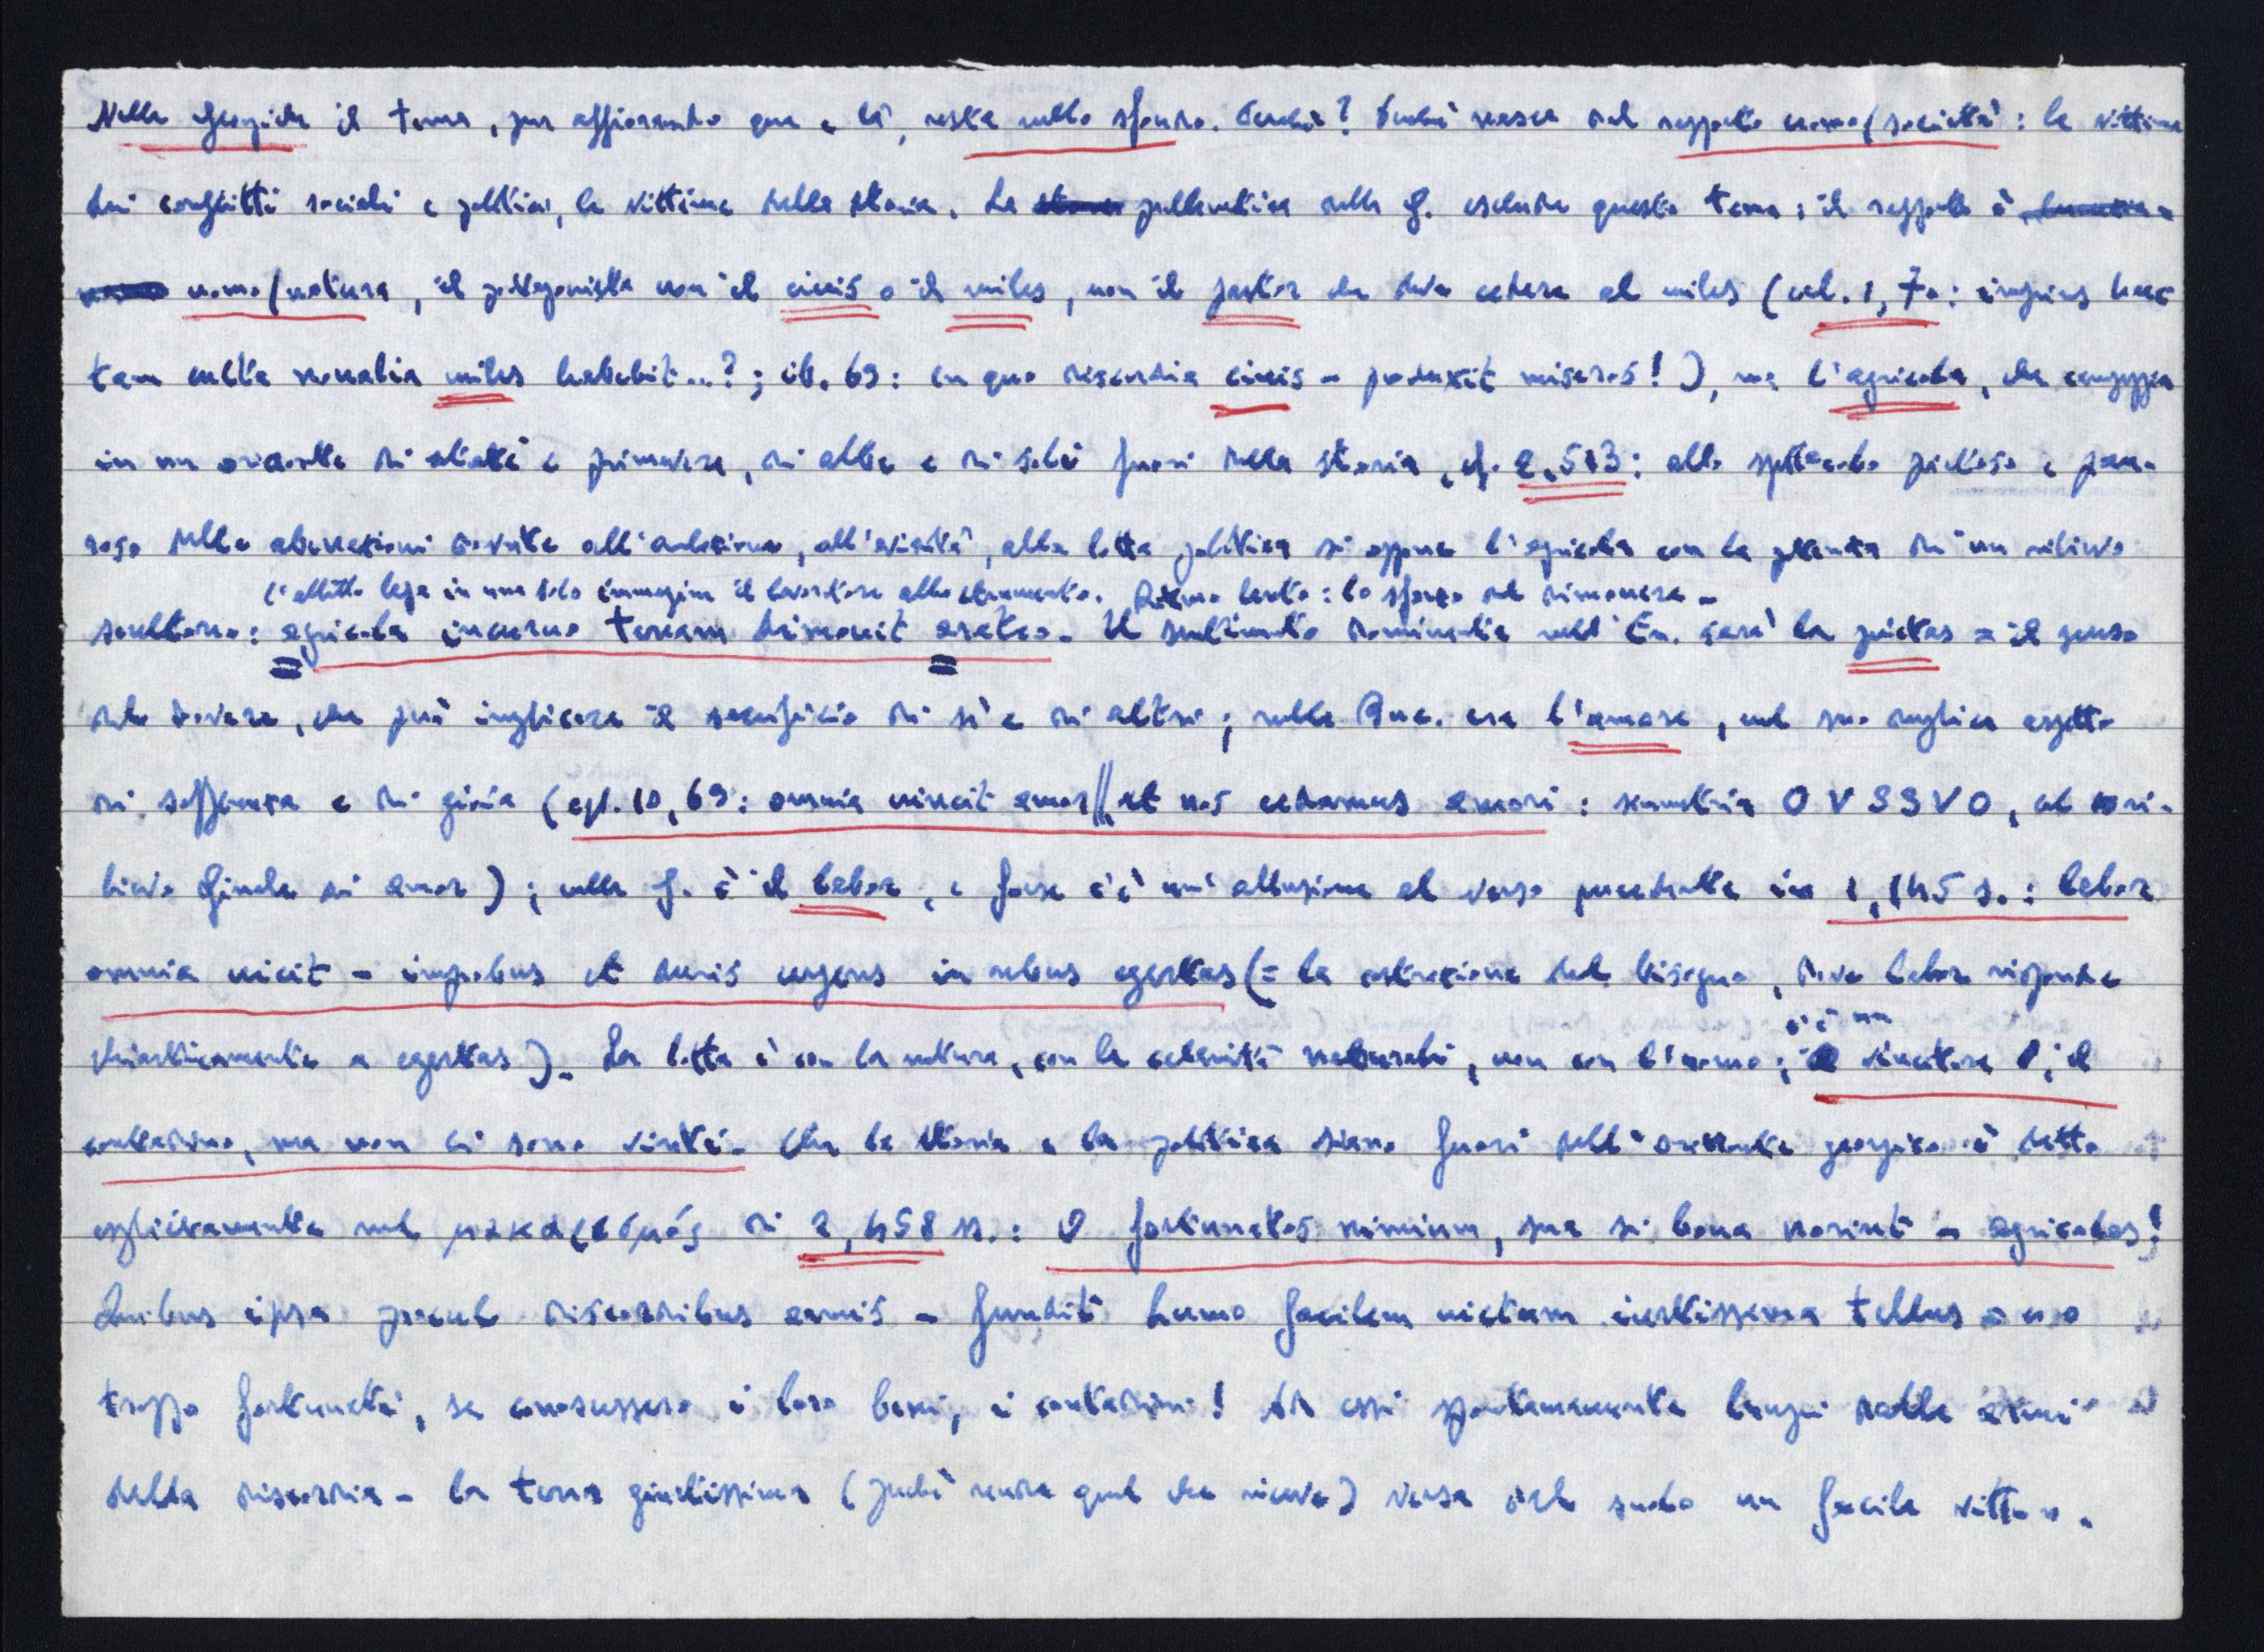 Nelle Georgiche il tema, pur affiorando qua e là, resta nello sfondo. Perché? Perché nasce dal rapporto uomo/società: le vittime
dei conflitti sociali e politici, le vittime della storia. La problematica delle G. esclude questo tema: il rapporto è
uomo/natura, il protagonista non il civis o il miles, non il pastor che deve cedere al miles (ecl. 1, 70: impius haec
tam culta novalia miles habebit...?; ib. 69: en quo discordia civis - produxit miseros!), ma l'agricola, che campeggia
in un orizzonte di estati e primavere, di albe e di soli fuori della storia, cf. 2, 513: allo spettacolo pietoso e pau-
roso delle aberrazioni dovute all'ambizione, all'avidità, alla lotta politica si oppone l'agricola con la potenza di un rilievo
l'allitt. lega in una sola immagine il lavoratore allo strumento. Ritmo lento: lo sforzo del rimuovere -
scultoreo: agricola incurvo terram dimovit aratro. Il sentimento dominante nell'En. sarà la pietas = il senso
del dovere, che può implicare il sacrificio di sé e di altri; nelle Buc. era l'amore, nel suo duplice aspetto
di sofferenza e di gioia (egl. 10, 69: omnia vincit amor || et nos cedamus amori: simmetria O V S S V O, al
finale di amor); nelle G. è il labor, e forse c'è un'allusione al verso precedente in 1, 145 s.: labor
omnia vicit - improbus et duris urgens in rebus egestas (= la costrizione del bisogno, dove labor risponde
chiasticamente a egestas). La lotta è con la natura, con le calamità naturali, non con l'uomo; c'è un vincitore, il
contadino, ma non ci sono vinti. Che la storia e la politica siano fuori dell'orizzonte georgico è detto
esplicitamente nel μακαρισμός di 2, 458 ss.: O fortunatos nimium, sua si bona norint - agricolas!
Quibus ipsa procul discordibus armis - fundit humo facilem victum iustissima tellus = «o
troppo fortunati, se conoscessero i loro beni, i contadini! Ad essi spontaneamente lungi dalle armi
della discordia - la terra giustissima (perché rende quel che riceve) versa dal suolo un facile vitto».